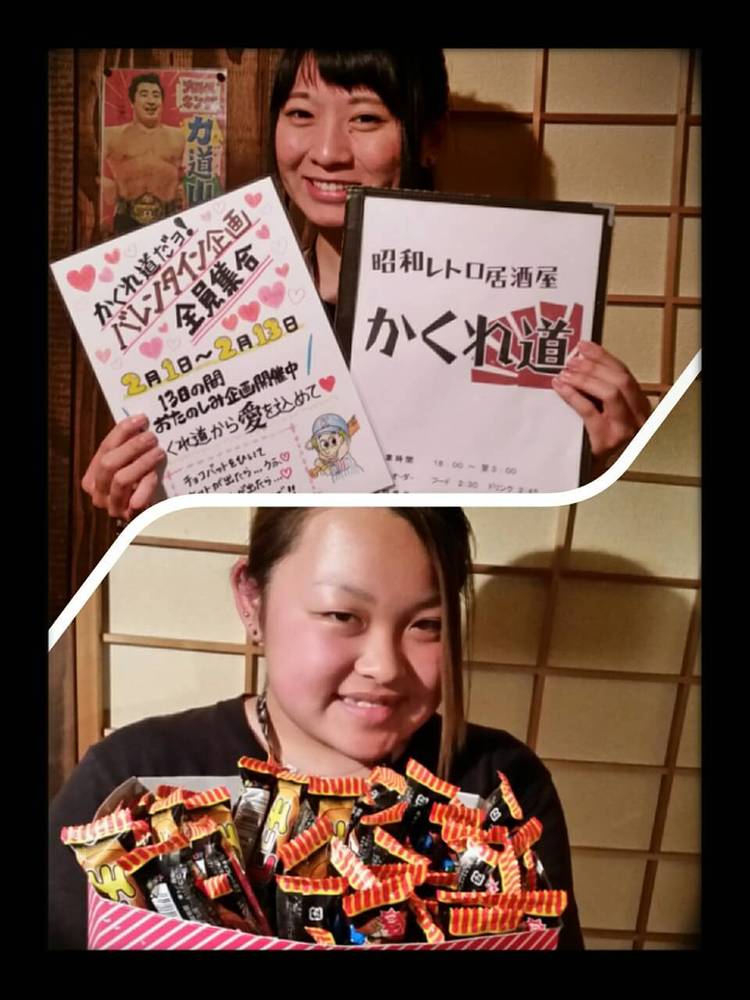 プロレス
キング
力道山
かくれ道だョ!
バレンタイン企画
全員集合
2月1日〜2月13日
13日の間
おたのしみ企画開催中
くれ道から愛を込めて
チョコバットをひいて
昭和レトロ居酒屋
かくれ道
業時間 18:00 〜 翌3:00
オーダー フード 2:30 ドリンク 2:45